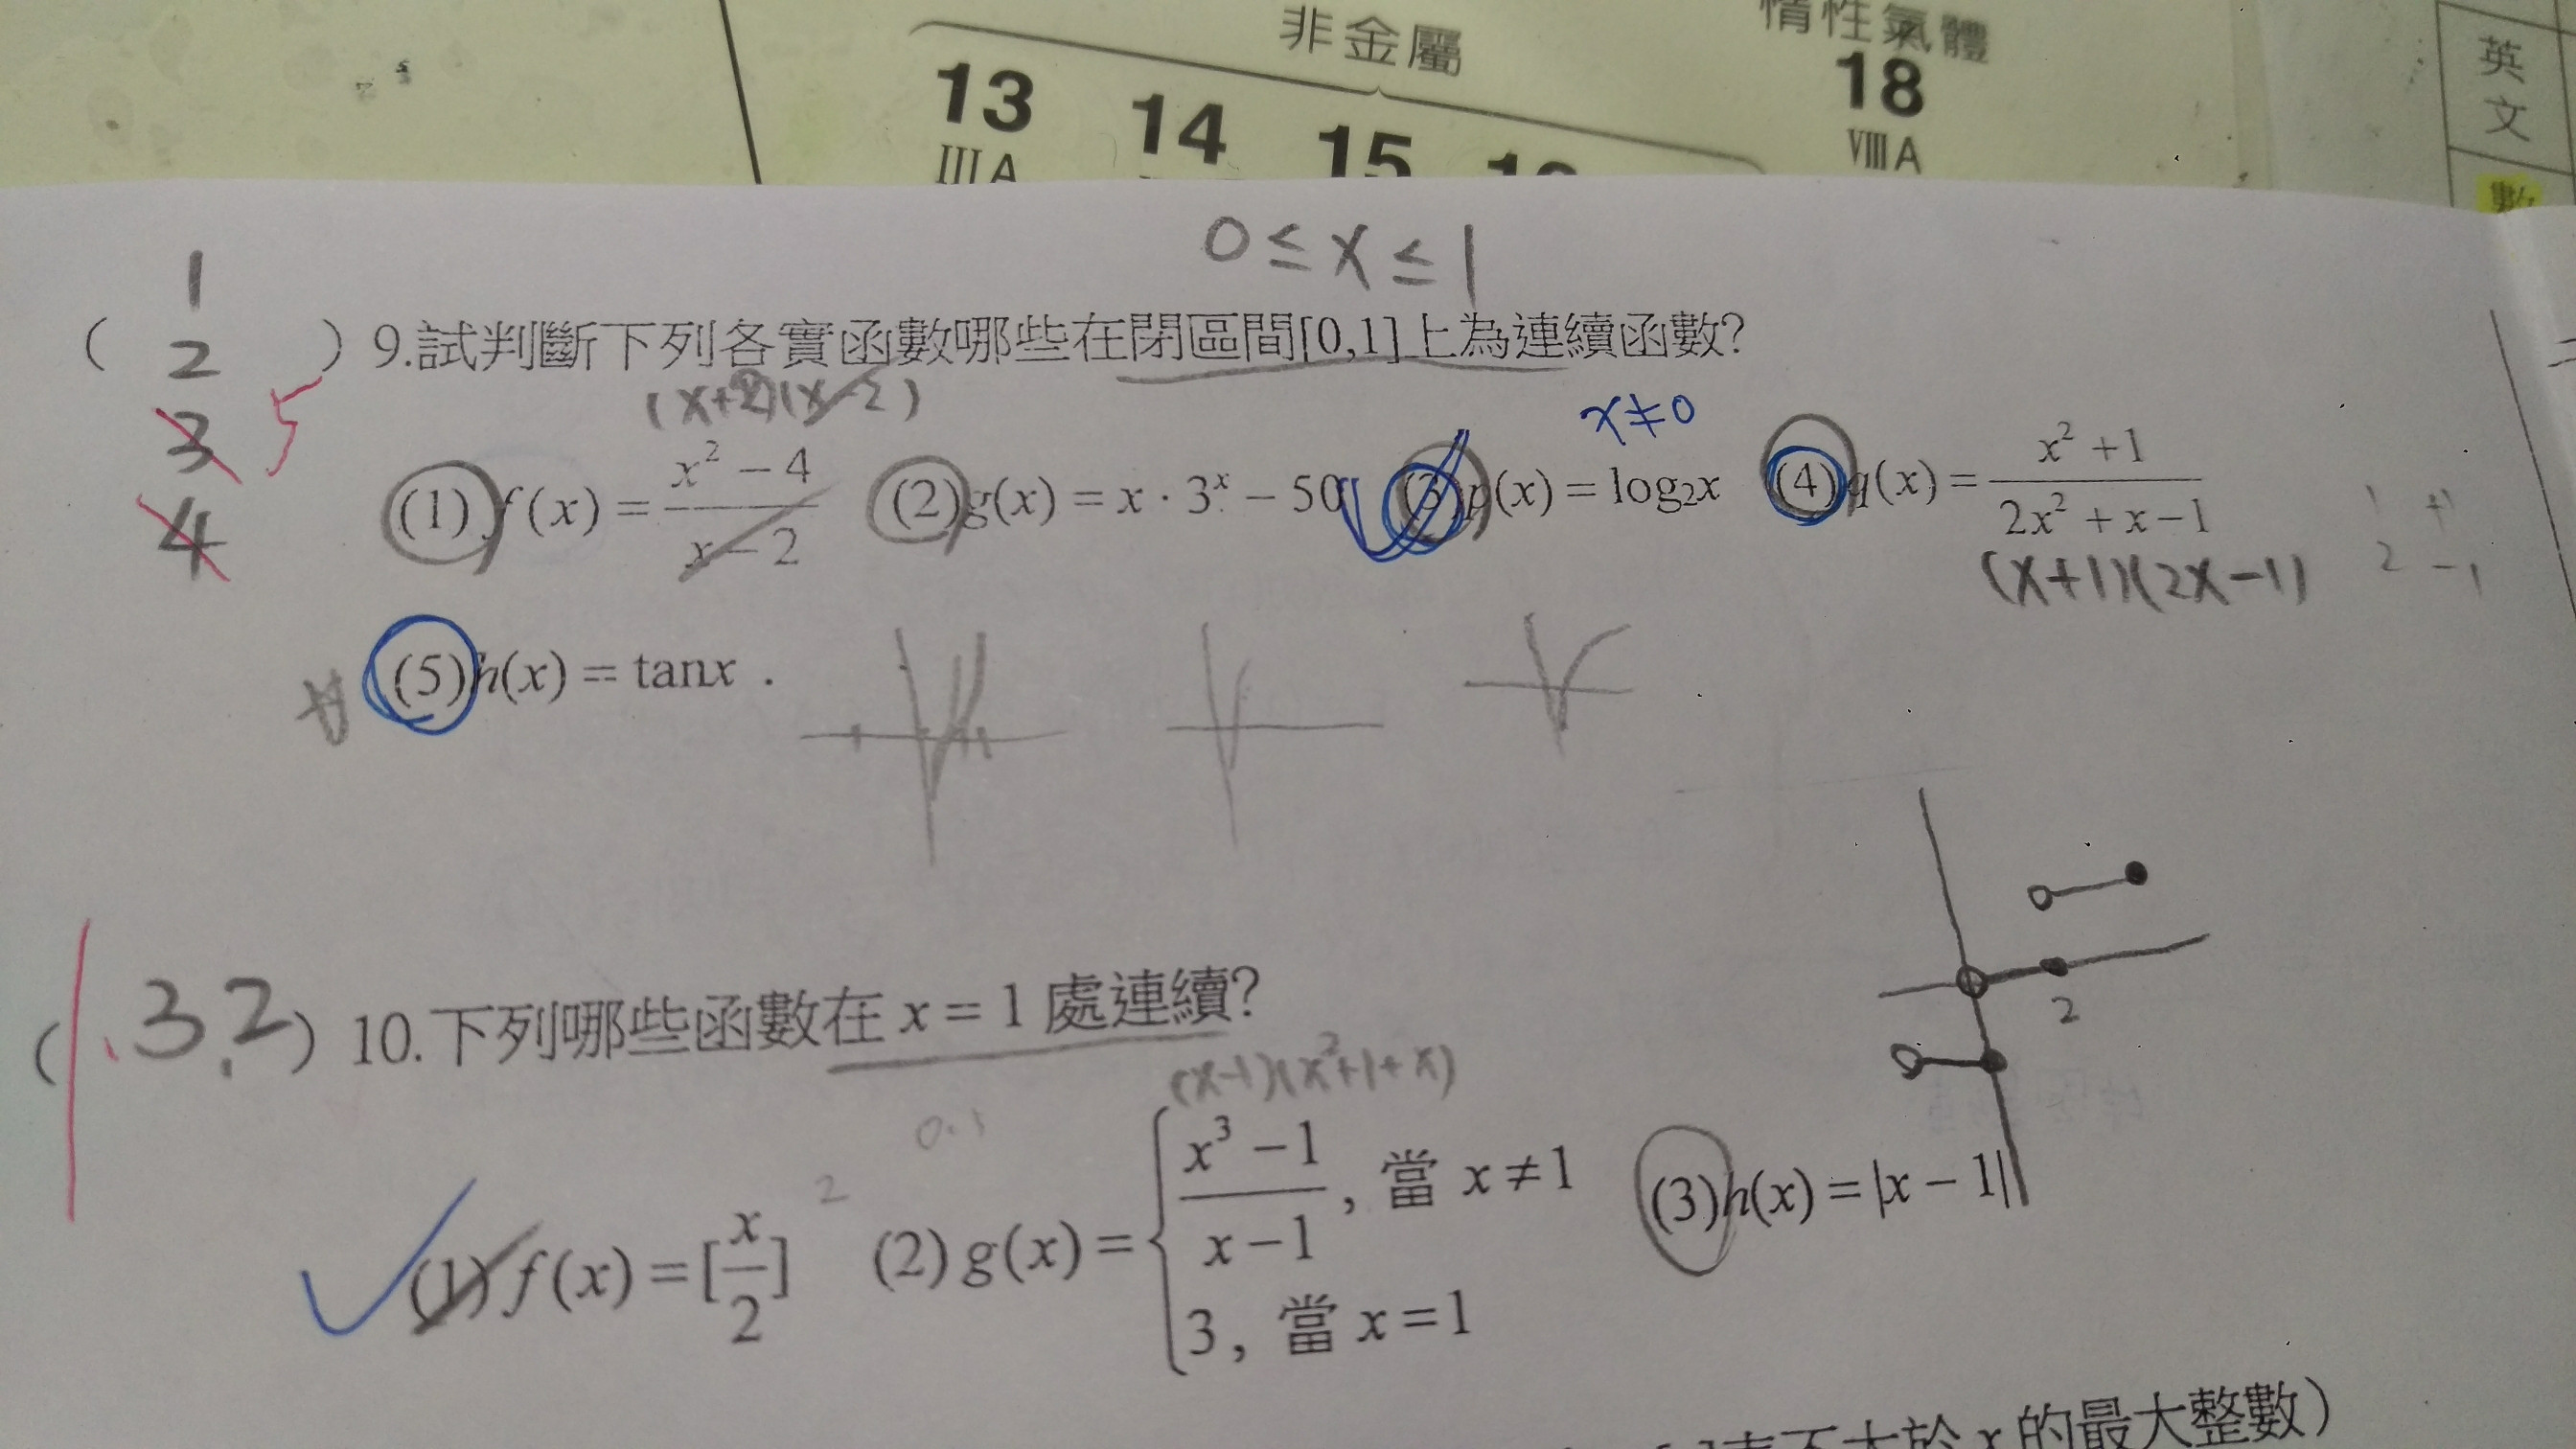 非金屬
惰性氣體
13 14 15 18
IIIA VIIIA
英文
數
0 ≤ x ≤ 1
1
2
3 5
4
( ) 9.試判斷下列各實函數哪些在閉區間[0,1]上為連續函數?
(x+2)(x-2)
x≠0
(1) f(x) = \frac{x^2 - 4}{x - 2} (2) g(x) = x · 3^x - 50 (3) p(x) = log_2 x (4) q(x) = \frac{x^2 + 1}{2x^2 + x - 1}
(x+1)(2x-1)
1 +1
2 -1
(5) h(x) = tanx .
2
(1.3.2) 10.下列哪些函數在 x = 1 處連續?
(x-1)(x^2+1+x)
0.1
2
(1) f(x) = [\frac{x}{2}] (2) g(x) = { \frac{x^3 - 1}{x - 1}, 當 x ≠ 1 (3) h(x) = |x - 1|
3, 當 x = 1
不大於 x 的最大整數)